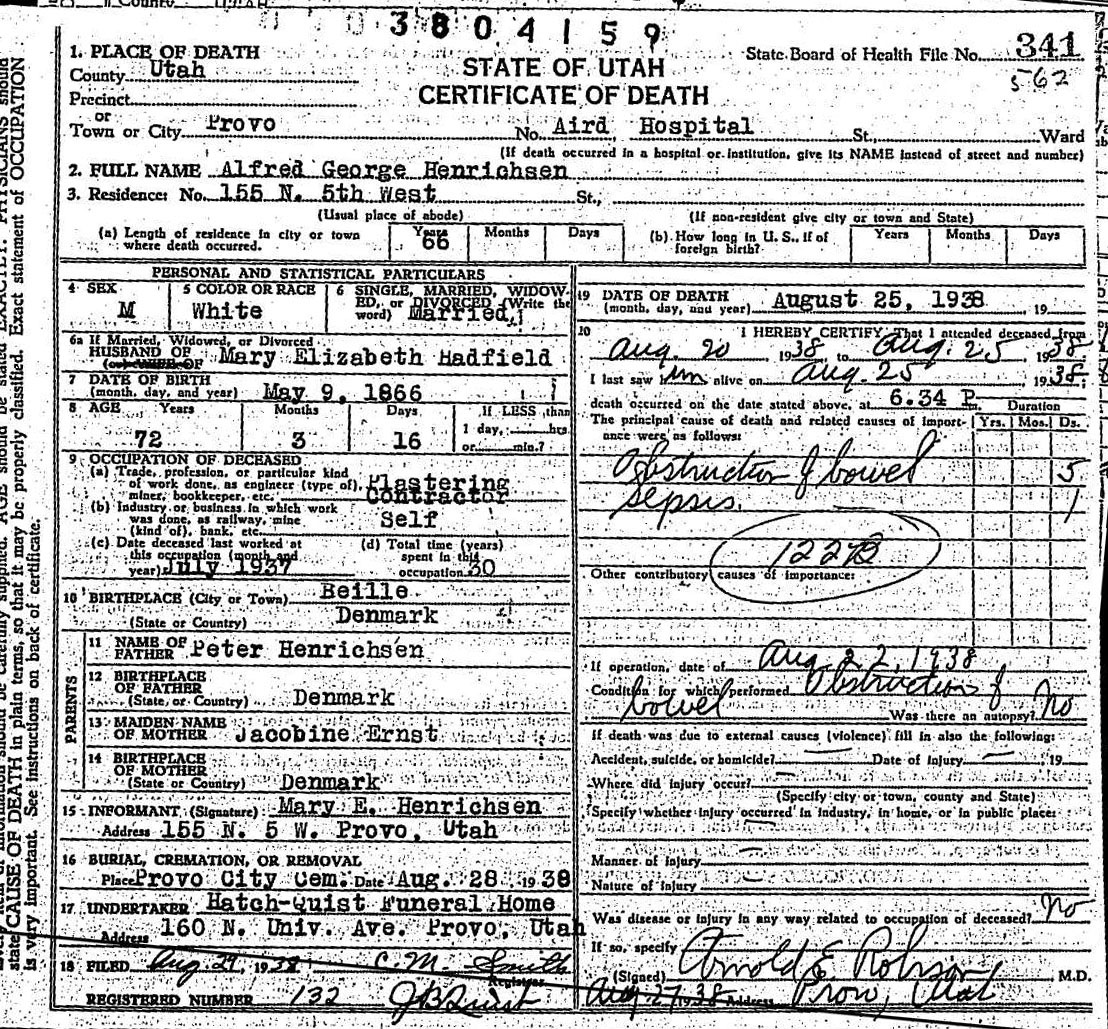 County UTAH
3804159
1. PLACE OF DEATH
County Utah
Precinct
or
Town or City Provo
STATE OF UTAH
CERTIFICATE OF DEATH
State Board of Health File No. 341
562
No. Aird Hospital St. Ward
(If death occurred in a hospital or institution, give its NAME instead of street and number)
2. FULL NAME Alfred George Henrichsen
3. Residence: No. 155 N. 5th West St.,
(Usual place of abode) (If non-resident give city or town and State)
(a) Length of residence in city or town where death occurred. Years 66 Months Days
(b) How long in U. S., if of foreign birth? Years Months Days
PERSONAL AND STATISTICAL PARTICULARS
4 SEX M
5 COLOR OR RACE White
6 SINGLE, MARRIED, WIDOWED, or DIVORCED (Write the word) Married
6a If Married, Widowed, or Divorced
HUSBAND OF Mary Elizabeth Hadfield
(or) WIFE OF
7 DATE OF BIRTH
(month, day, and year) May 9, 1866
8 AGE Years 72 Months 3 Days 16 If LESS than 1 day, hrs. or min.?
9 OCCUPATION OF DECEASED
(a) Trade, profession, or particular kind of work done, as engineer (type of), miner, bookkeeper, etc. Plastering Contractor
(b) Industry or business in which work was done, as railway, mine (kind of), bank, etc. Self
(c) Date deceased last worked at this occupation (month and year) July 1937
(d) Total time (years) spent in this occupation 30
10 BIRTHPLACE (City or Town) Beille
(State or Country) Denmark
PARENTS
11 NAME OF FATHER Peter Henrichsen
12 BIRTHPLACE OF FATHER
(State or Country) Denmark
13 MAIDEN NAME OF MOTHER Jacobine Ernst
14 BIRTHPLACE OF MOTHER
(State or Country) Denmark
15 INFORMANT (Signature) Mary E. Henrichsen
Address 155 N. 5 W. Provo, Utah
16 BURIAL, CREMATION, OR REMOVAL
Place Provo City Cem. Date Aug. 28 1938
17 UNDERTAKER Hatch-Quist Funeral Home
Address 160 N. Univ. Ave. Provo, Utah
18 FILED Aug. 29, 1938 C. M. Smith
Registrar
REGISTERED NUMBER 132 J B Quist
19 DATE OF DEATH
(month, day, and year) August 25, 1938 19
20 I HEREBY CERTIFY, That I attended deceased from
Aug. 20 1938, to Aug. 25, 1938.
I last saw him alive on Aug. 25 1938,
death occurred on the date stated above, at 6.34 P.m. Duration
The principal cause of death and related causes of importance were as follows: Yrs. Mos. Ds.
Obstruction of bowel 5
Sepsis. 1
122B
Other contributory causes of importance:
If operation, date of Aug. 22, 1938
Condition for which performed Obstruction of
bowel Was there an autopsy? No
If death was due to external causes (violence) fill in also the following:
Accident, suicide, or homicide? Date of Injury 19
Where did injury occur?
(Specify city or town, county and State)
Specify whether injury occurred in industry, in home, or in public place:
Manner of injury
Nature of injury
Was disease or injury in any way related to occupation of deceased? No
If so, specify
(Signed) Arnold E. Robison M.D.
Aug 27 1938 Address Provo, Utah
state CAUSE OF DEATH in plain terms, so that it may be properly classified. Exact statement of OCCUPATION
is very important. See instructions on back of certificate.